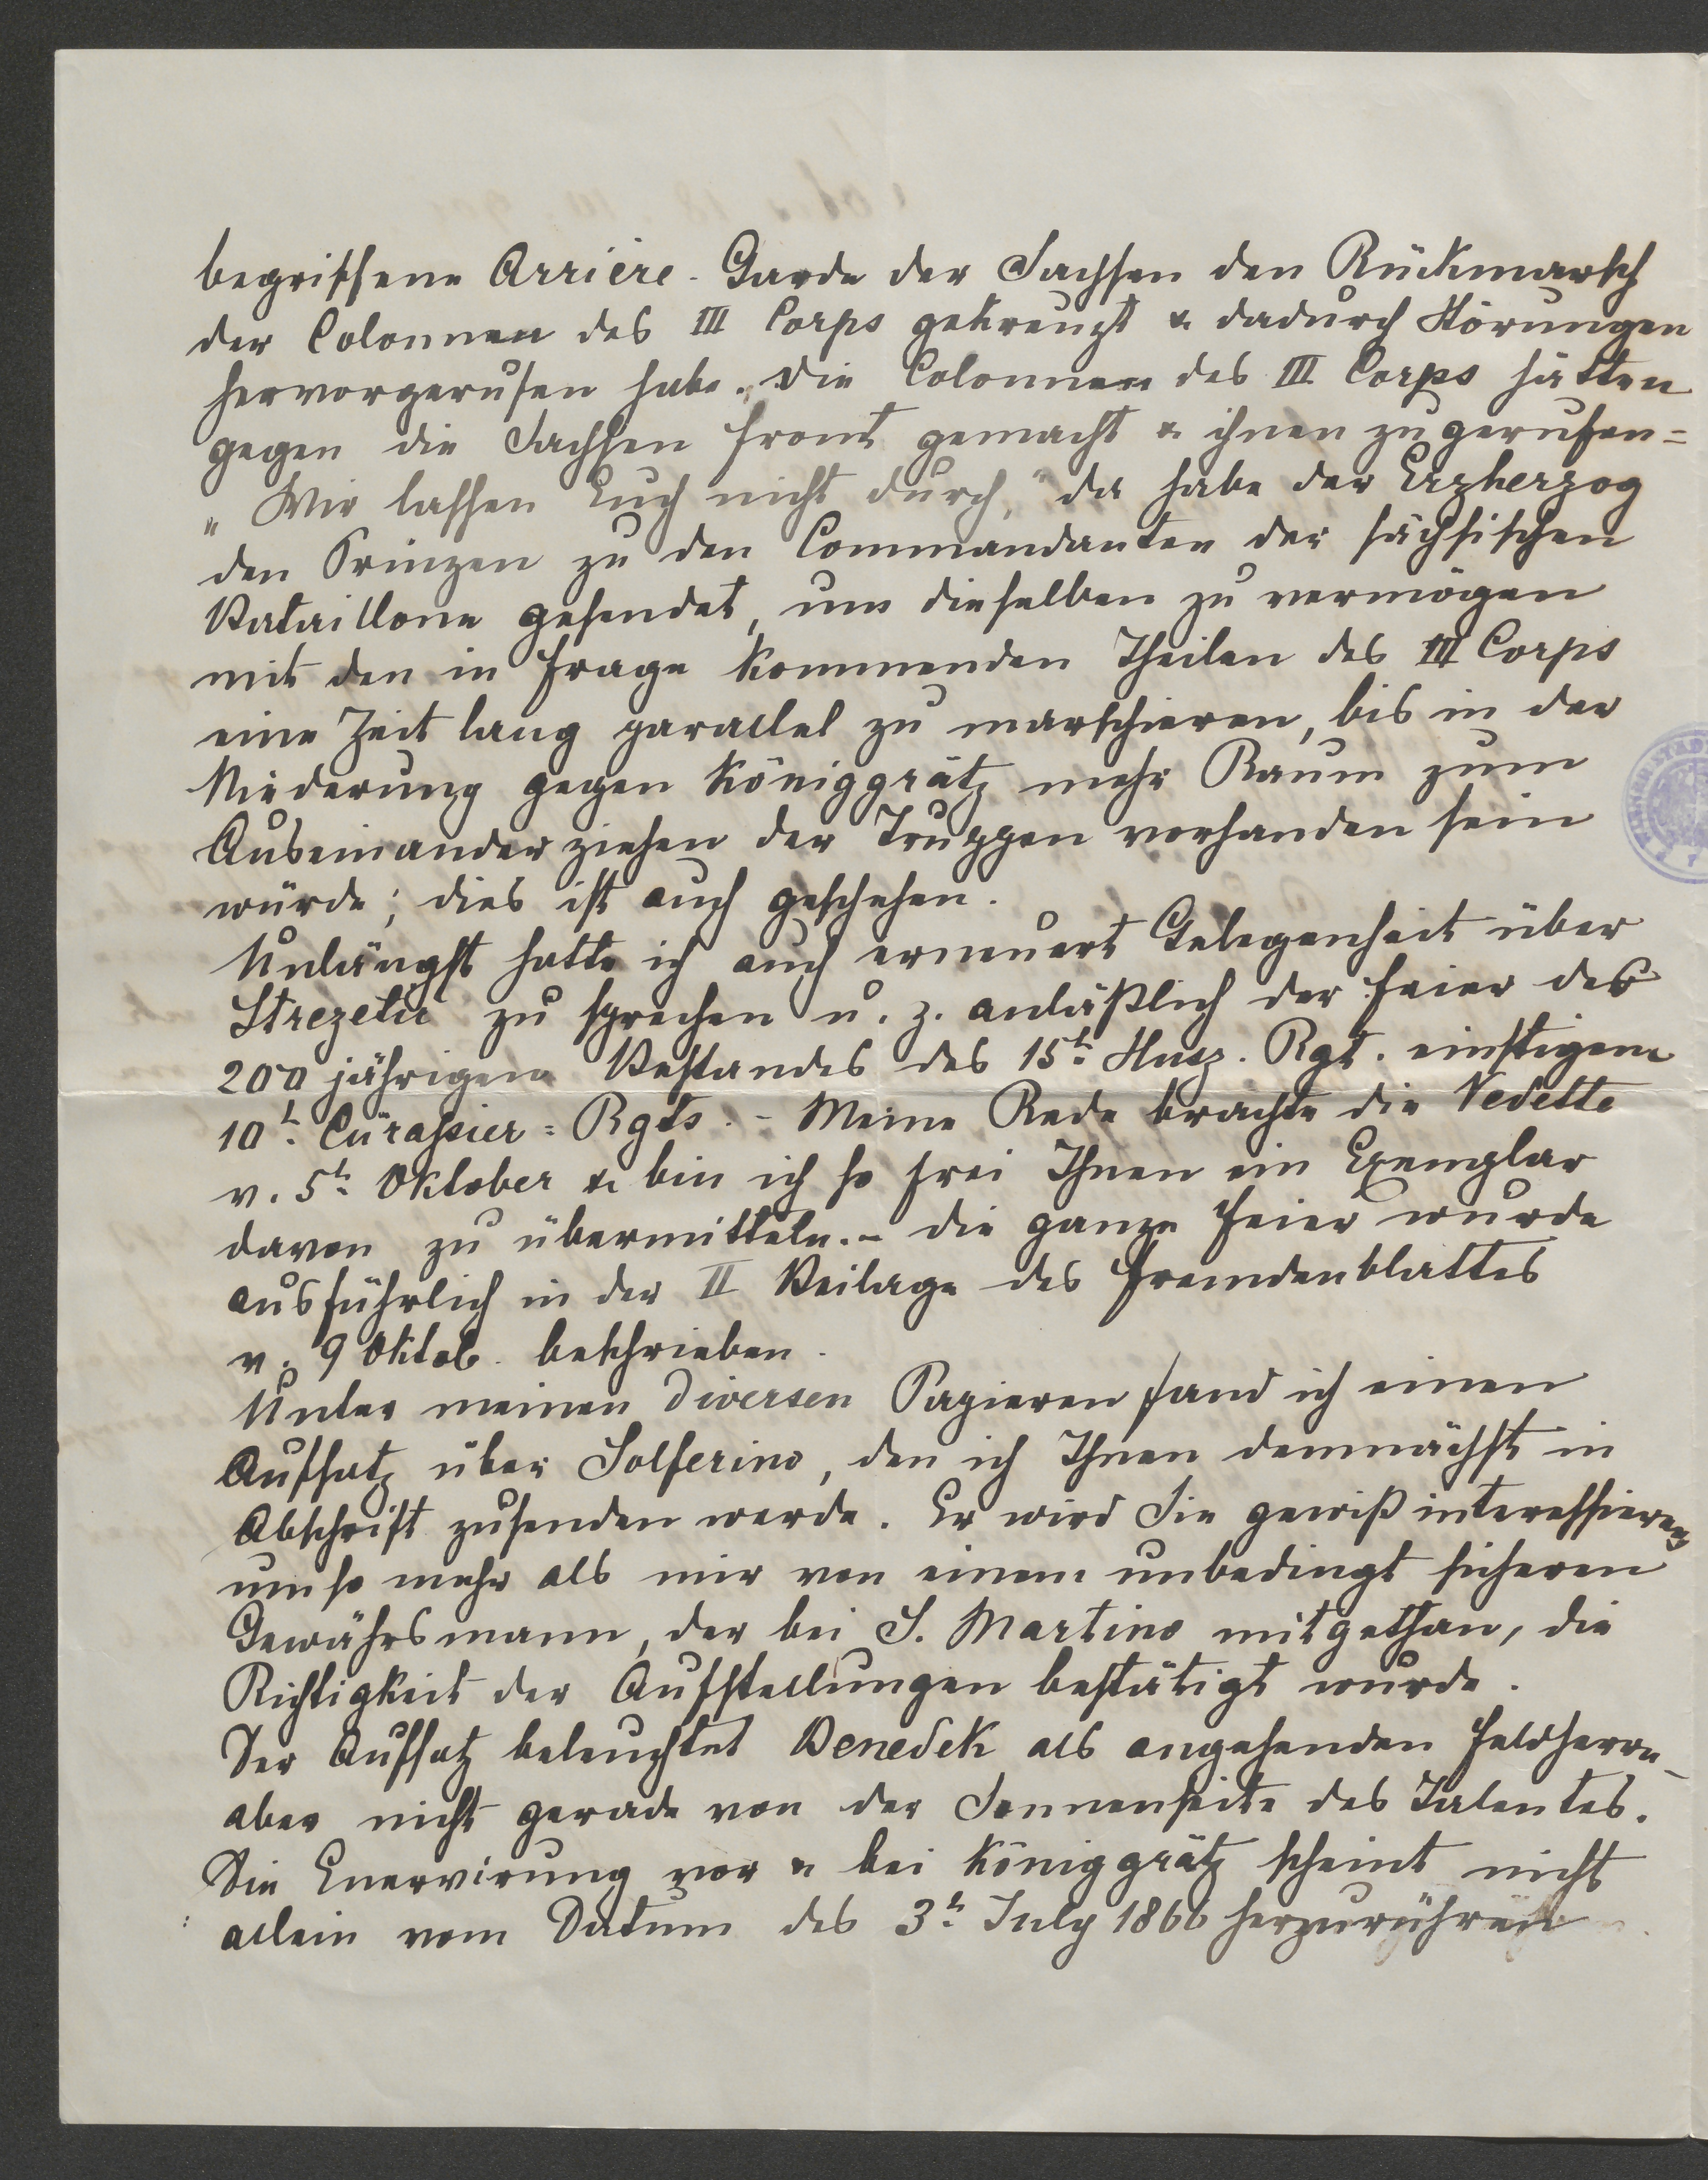 begriffene Arrière-Garde der Sachsen den Rückmarsch
der Colonnen des III Corps gekreuzt & dadurch Störungen
hervorgerufen habe. Die Colonnen des III Corps hätten
gegen die Sachsen Front gemacht & ihnen zugerufen=
"Wir lassen Euch nicht durch," da habe der Erzherzog
den Prinzen zu den Commandanten der sächsischen
Bataillone gesendet, um dieselben zu vermögen
mit den in Frage kommenden Theilen des III Corps
eine Zeit lang parallel zu marschieren, bis in der
Niederung gegen Königgrätz mehr Raum zum
Auseinanderziehen der Truppen vorhanden sein
würde; dies ist auch geschehen.
Unlängst hatte ich auch erneuert Gelegenheit über
Strezetic zu sprechen u. z. anläßlich der Feier des
200 jährigen Bestandes des 15t. Husz. Rgt. einstigem
10t. Cürassier=Rgts. - Meine Rede brachte die Vedette
v. 5t. Oktober & bin ich so frei Ihnen ein Exemplar
davon zu übermitteln. - die ganze Feier wurde
ausführlich in der II Beilage des Fremdenblattes
v. 9 Oktob. beschrieben.
Unter meinen diversen Papieren fand ich einen
Aufsatz über Solferino, den ich Ihnen demnächst in
Abschrift zusenden werde. Er wird Sie gewiß interessieren,
umso mehr als mir von einem unbedingt sicheren
Gewährsmann, der bei S. Martino mitgethan, die
Richtigkeit der Aufstellungen bestätigt wurde.
Der Aufsatz beleuchtet Benedek als angehenden Feldherrn -
aber nicht gerade von der Sonnenseite des Talentes.
Die Enervirung vor & bei Königgrätz scheint nicht
allein vom Datum des 3t. July 1866 herzurühren